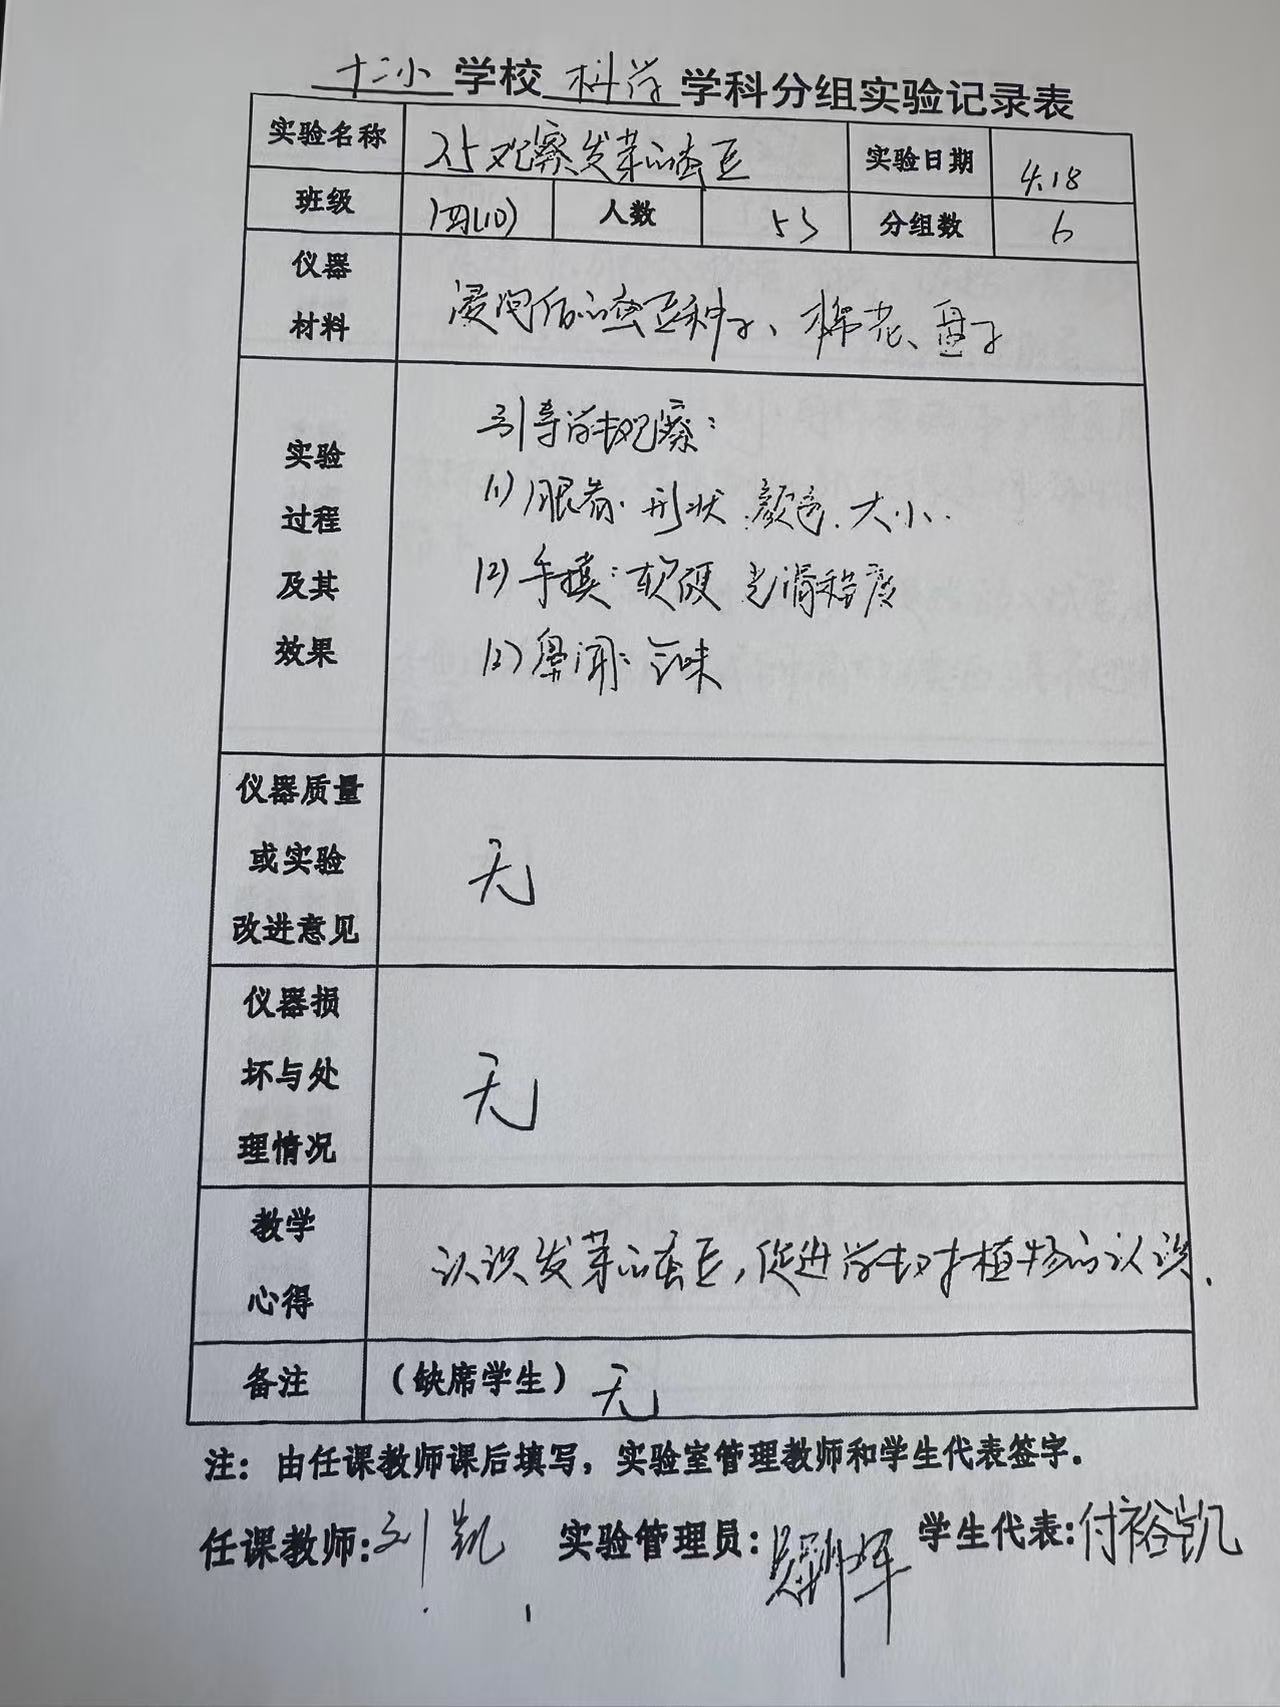 十二小 学校 科学 学科分组实验记录表
实验名称 25观察发芽的蚕豆 实验日期 4.18
班级 四(10) 人数 53 分组数 6
仪器
材料
浸泡后的蚕豆种子、棉花、盘子
实验
过程
及其
效果
引导学生观察:
(1) 眼看. 形状 颜色. 大小.
(2) 手摸: 软硬 光滑程度
(3) 鼻闻: 气味
仪器质量
或实验
改进意见
无
仪器损
坏与处
理情况
无
教学
心得
认识发芽的蚕豆,促进学生对植物的认识.
备注 (缺席学生) 无
注：由任课教师课后填写，实验室管理教师和学生代表签字.
任课教师:刘凯 实验管理员: 学生代表:付裕凯